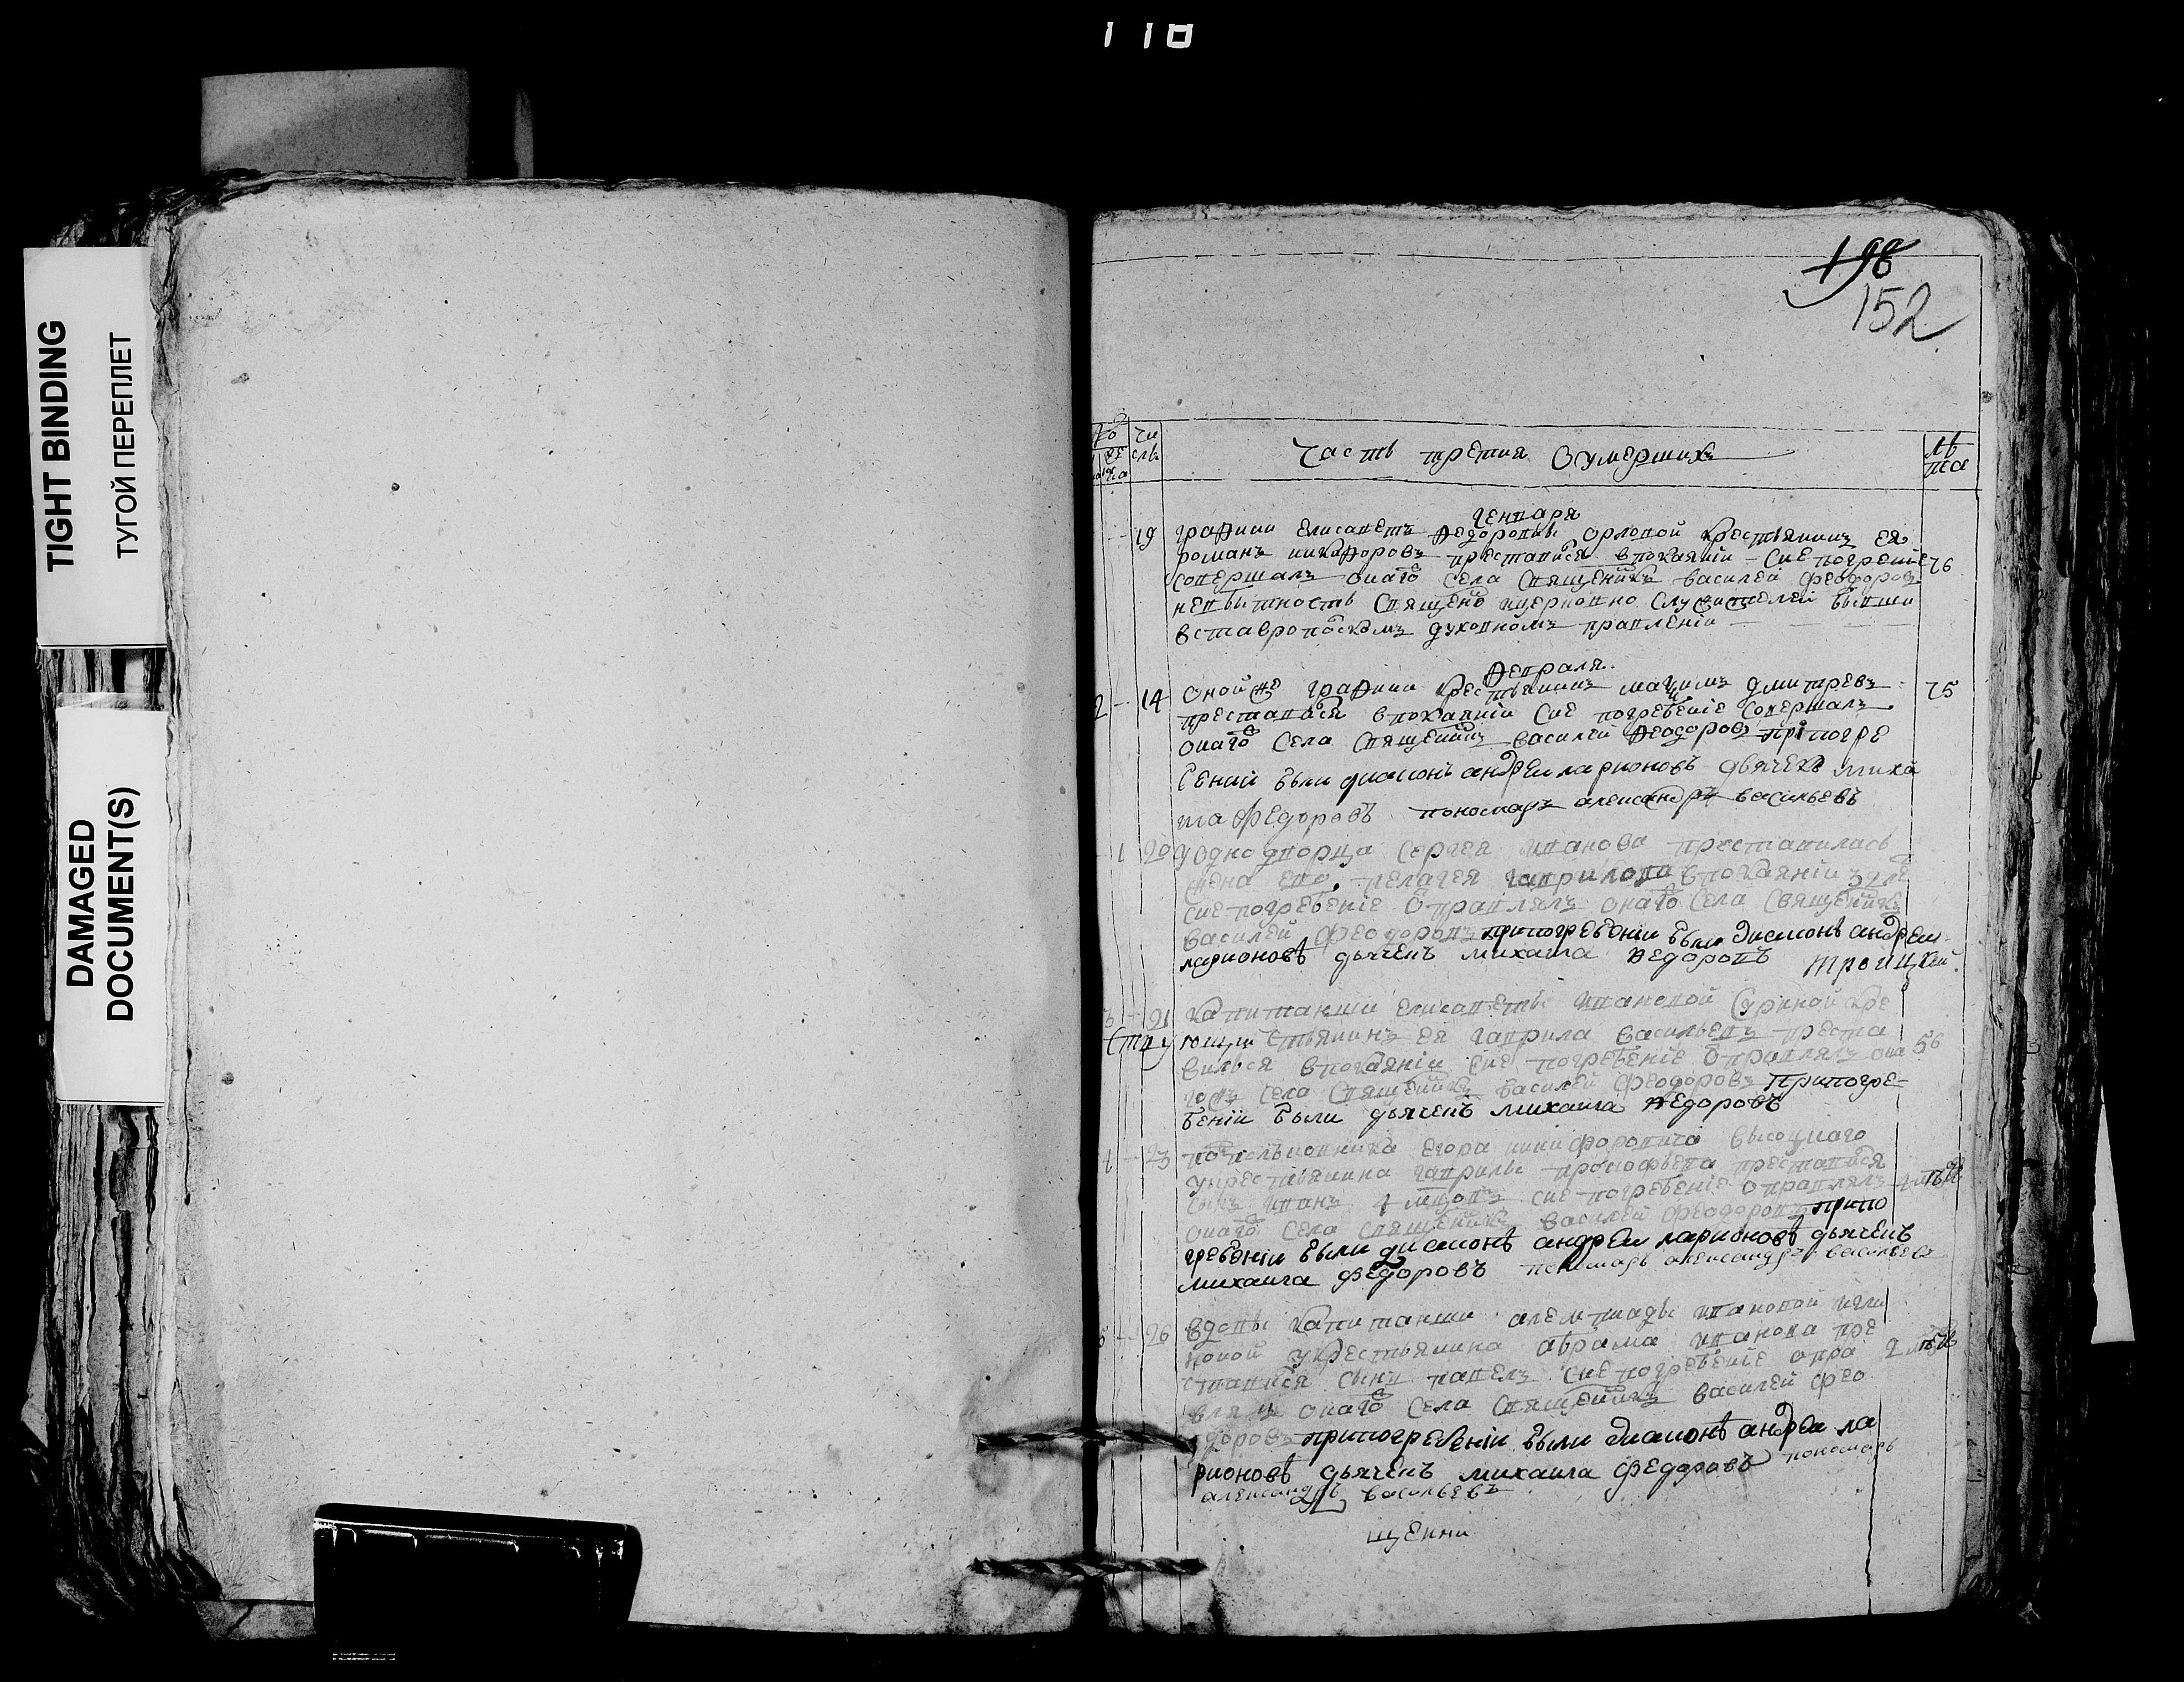 118
TIGHT BINDING
ТУГОЙ ПЕРЕПЛЕТ
DAMAGED
DOCUMENT(S)
198
152
чи
сла
Часть третия О умершихъ
лѣ
та
генваря
19 графини Елисаветъ Федоровны Орловой крестьянинъ ея
романъ никифоровъ преставися в покаянии - сие погребение 76
совершалъ онаго села священникъ василей феодоровъ
небытность священо ицерковно служителей бывши
вставропоском духовномъ правлении
февраля
2 - 14 оной же графини крестьянинъ максимъ дмитревъ 75
преставися впокаянии сие погребение совершалъ
онаго села священникъ василей феодоровъ при погре
бении были диаконъ андреи ларионовъ дьячекъ миха
ила федоровъ пономарь александръ васильевъ
- 1 20 у однодворца сергея иванова преставилась
жена его пелагея гаврилова впокаянии
сие погребение отправлялъ онаго села священникъ
василей феодоровъ при погребении были диаконъ андреи
ларионовъ дьячекъ михаила федоровъ троицкой
3 - 21 капитанши елисаветы ивановой суриной кре
стьянинъ ея гаврила васильевъ преста
Ступующи
вился впокаянии сие погребение отправлялъ она 56
гожъ села священникъ василей феодоровъ при погре-
бении были дьячекъ михаила федоровъ
4 - 23 подполковника егора никифоровича высоцкаго
у крестьянина гаврилы прокофьева преставися
сынъ иванъ сие погребение отправлялъ
онаго села священникъ василей феодоровъ при по
гребении были диаконъ андреи ларионовъ дьячекъ
михаила федоровъ пономарь александръ васильевъ
5 - 26 вдовы капитанши ивановой
у крестьянина абрама иванова пре
ставися сынъ павелъ сие погребение отпра
влялъ онаго села священникъ василей фео
доровъ при погребении были диаконъ андреи ла
рионовъ дьячекъ михаила федоровъ пономарь
александръ васильевъ
щенни